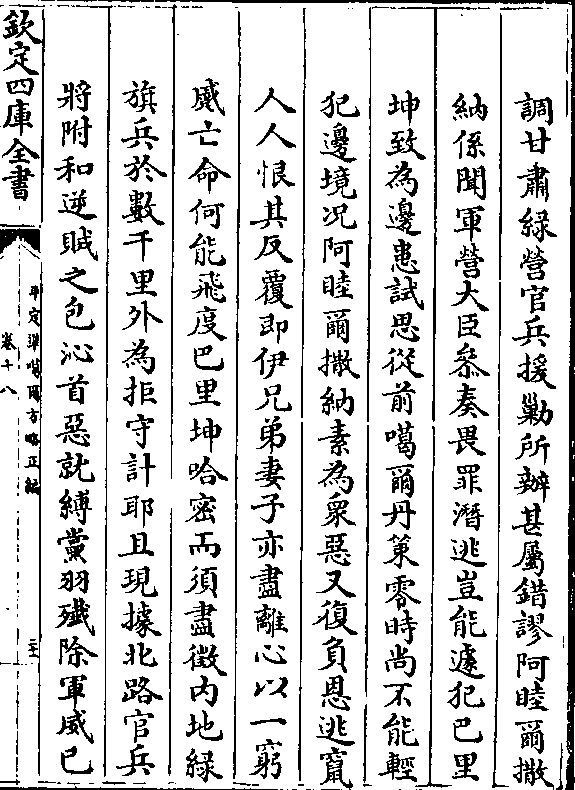 調甘肅綠營官兵援勦所辦甚屬錯謬阿睦爾撒
納係聞軍營大臣叅奏畏罪潛逃豈能遽犯巴里
坤致為邊患試思從前噶爾丹策零時尚不能輕
犯邊境况阿睦爾撒納素為衆惡又復負恩逃竄
人人恨其反覆即伊兄弟妻子亦盡離心以一窮
蹙亡命何能飛度巴里坤哈密而須盡徵内地綠
旗兵於數千里外為拒守計耶且現據北路官兵
將附和逆賊之包沁首惡就縛黨羽殲除軍威已
欽定四庫全書
平定凖噶爾方略正編
卷十八